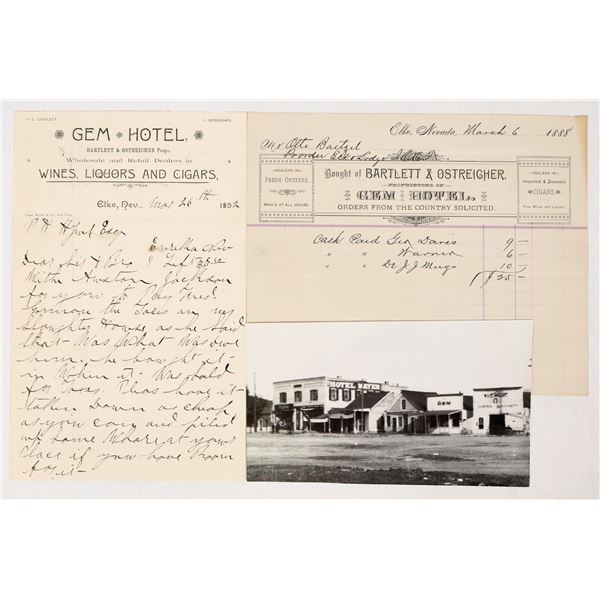 F. C. BARTLETT
I. OSTREICHER.
GEM HOTEL,
BARTLETT & OSTREICHER Props.
Wholesale and Retail Dealers in
WINES, LIQUORS AND CIGARS,
Elko, Nev. May 26th 1892
Esq
Eureka
Dear Sir & Bro I
With Huston Jackson
for you to Pay
the on my
Slaughty House as he said
that Was What Was owe
him. he bought it
in When it Was Sold
for Pleas have it
taken Down as cheap
as you can and piled
up Some Whare at your
Place if you have Room
for it
Elko, Nevada, March 6 1888
Mr Otto Baitzel
Elko Lodge
Bought of BARTLETT & OSTREIGHER.
PROPRIETORS OF
GEM HOTEL.
ORDERS FROM THE COUNTRY SOLICITED.
DEALERS IN
FRESH OYSTERS.
MEALS AT ALL HOURS.
DEALERS IN
Imported & Domestic
CIGARS.
Fine Wines and Liquors
Cash Paid Geo Davis 9 —
" " Warner 6 —
" " Dr J J Mugs 10 —
$25 —
HOTEL MAYER
GEM